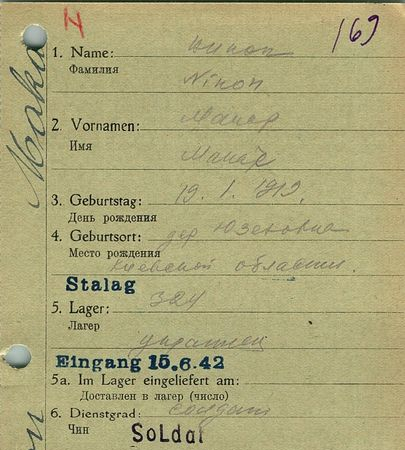 H 169
1. Name: Никон
Фамилия
Nikon
2. Vornamen: Макар
Имя
Makar
3. Geburtstag: 19. 1. 1912.
День рождения
4. Geburtsort: дер Юзефовка
Место рождения Киевской области.
Stalag
5. Lager: 324
Лагер
украинец
Eingang 15.6.42
5a. Im Lager eingeliefert am:
Доставлен в лагер (число)
6. Dienstgrad: солдат
Чин Soldat